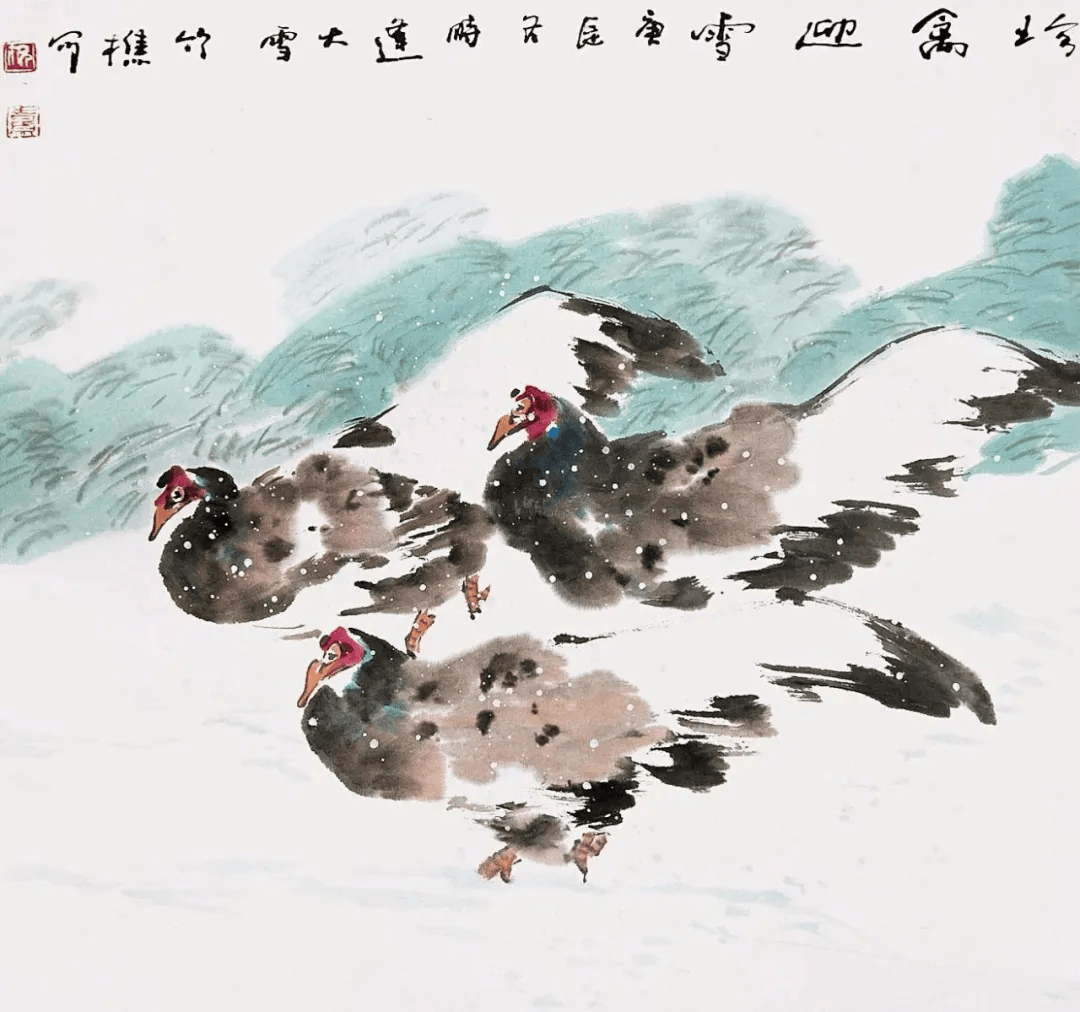 珍禽迎雪庚辰時逢大雪竹樵写